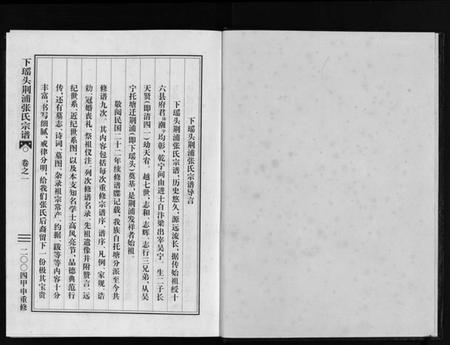 下瑶头荆浦张氏宗谱导言
下瑶头荆浦张氏宗谱，历史悠久，源远流长。据传始祖授十
六县府君，南，均彰，乾宁间由进士自汴梁出宰吴宁，生二子长
天贤（即清四一）幼天宥，越七世，志和，志辉，志行三兄弟，从吴
宁托塘迁荆浦（即下瑶头）奠基，是荆浦发祥者始祖。
敬阅民国二十二年续修谱牒记载，我族自托塘分派至今共
修谱九次，其内容包括每次重修宗谱序，谱序，凡例，家规，诰
勅，冠婚丧礼，祭祖仪注，列次修谱名录，先祖遗像并附赞言，远
纪世系，近纪世系图以及本支知名学士高风亮节，品德典范行
传，还有墓志，诗词，墓图，杂录祖宗常产，约据，跋等等内容十分
丰富，书写细腻，戒律分明，给我们张氏后裔留下一份极其宝贵
下瑶头荆浦张氏宗谱 卷之一
一
二〇〇四甲申重修